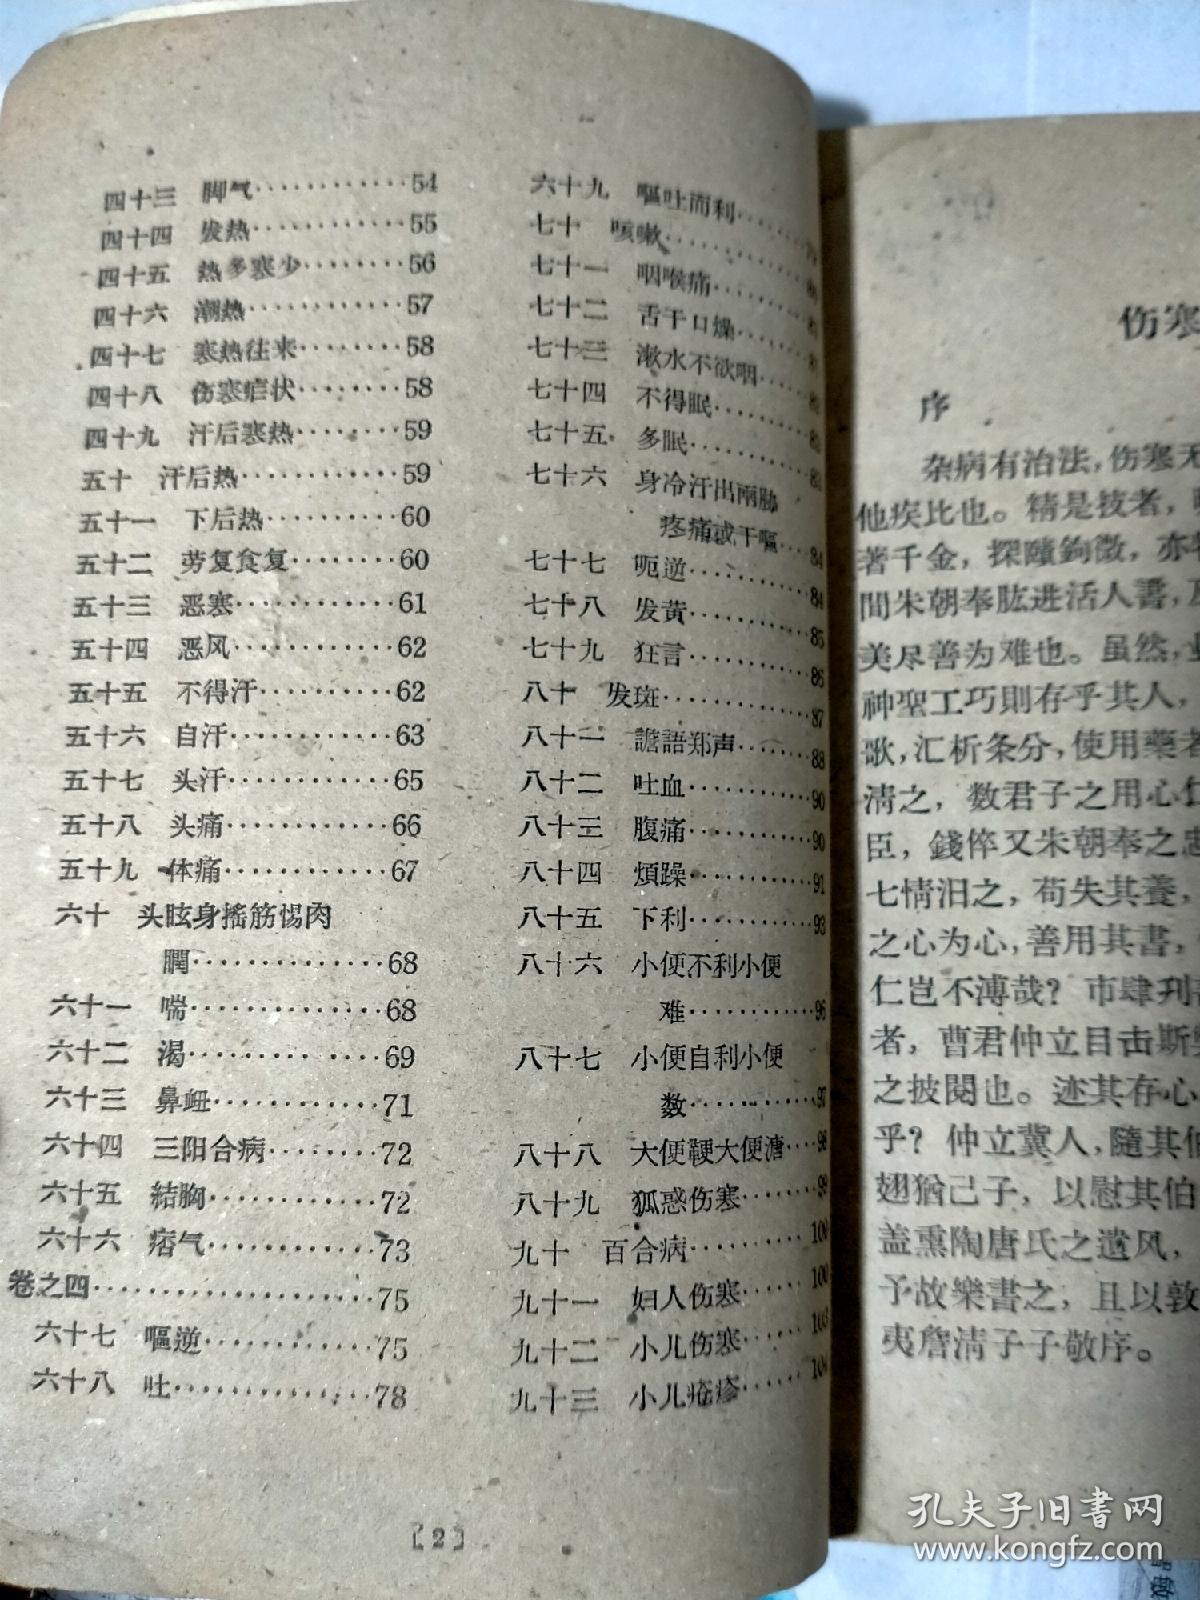 四十三 脚气············54
四十四 发热············55
四十五 热多寒少········56
四十六 潮热············57
四十七 寒热往来········58
四十八 伤寒症状········58
四十九 汗后寒热········59
五十 汗后热············59
五十一 下后热··········60
五十二 劳复食复········60
五十三 恶寒············61
五十四 恶风············62
五十五 不得汗··········62
五十六 自汗············63
五十七 头汗············65
五十八 头痛············66
五十九 体痛············67
六十 头眩身搖筋惕肉
膶··············68
六十一 喘··············68
六十二 渴··············69
六十三 鼻衄············71
六十四 三阳合病········72
六十五 結胸············72
六十六 痞气············73
卷之四····················75
六十七 嘔逆············75
六十八 吐··············78
六十九 嘔吐而利········
七十 咳嗽············
七十一 咽喉痛········
七十二 舌干口燥········
七十三 漱水不欲咽······
七十四 不得眠········
七十五 多眠··········83
七十六 身冷汗出兩胁
疼痛或干嘔···84
七十七 呃逆··········84
七十八 发黃··········85
七十九 狂言··········86
八十 发斑············87
八十一 譫語郑声······88
八十二 吐血··········90
八十三 腹痛··········90
八十四 煩躁··········91
八十五 下利··········93
八十六 小便不利小便
难··········96
八十七 小便自利小便
数··········97
八十八 大便鞕大便溏···98
八十九 狐惑伤寒······99
九十 百合病··········100
九十一 妇人伤寒······100
九十二 小儿伤寒······103
九十三 小儿疮疹······104
[2]
伤寒
序
杂病有治法，伤寒无
他疾比也。精是技者，
著千金，探賾鉤微，亦
間朱朝奉肱进活人書，
美尽善为难也。虽然，
神聖工巧則存乎其人，
歌，汇析条分，使用藥者
淸之，数君子之用心仁
臣，錢倅又朱朝奉之忠
七情汨之，苟失其養，
之心为心，善用其書，
仁岂不溥哉？市肆刊
者，曹君仲立目击斯
之披閱也。迹其存心
乎？仲立冀人，隨其伯
翅猶己子，以慰其伯
盖熏陶唐氏之遗风，
予故樂書之，且以敦
夷詹淸子子敬序。
孔夫子旧书网
www.kongfz.com